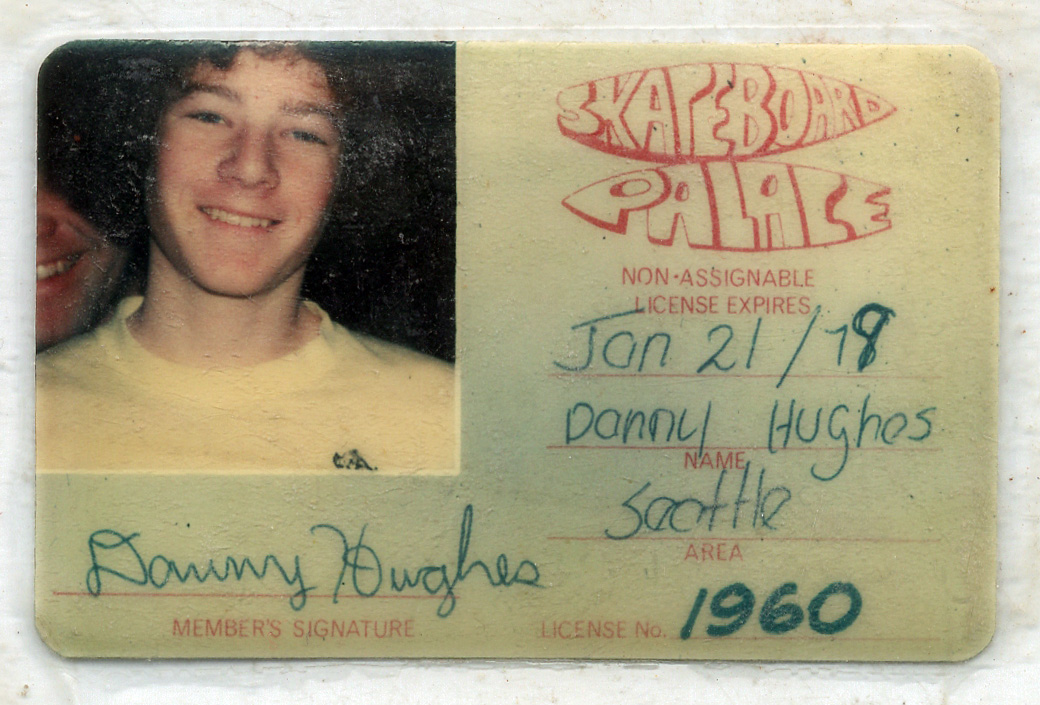 SKATEBOARD
PALACE
NON-ASSIGNABLE
LICENSE EXPIRES
Jan 21/78
Danny Hughes
NAME
Seattle
AREA
Danny Hughes
MEMBER'S SIGNATURE
LICENSE No. 1960